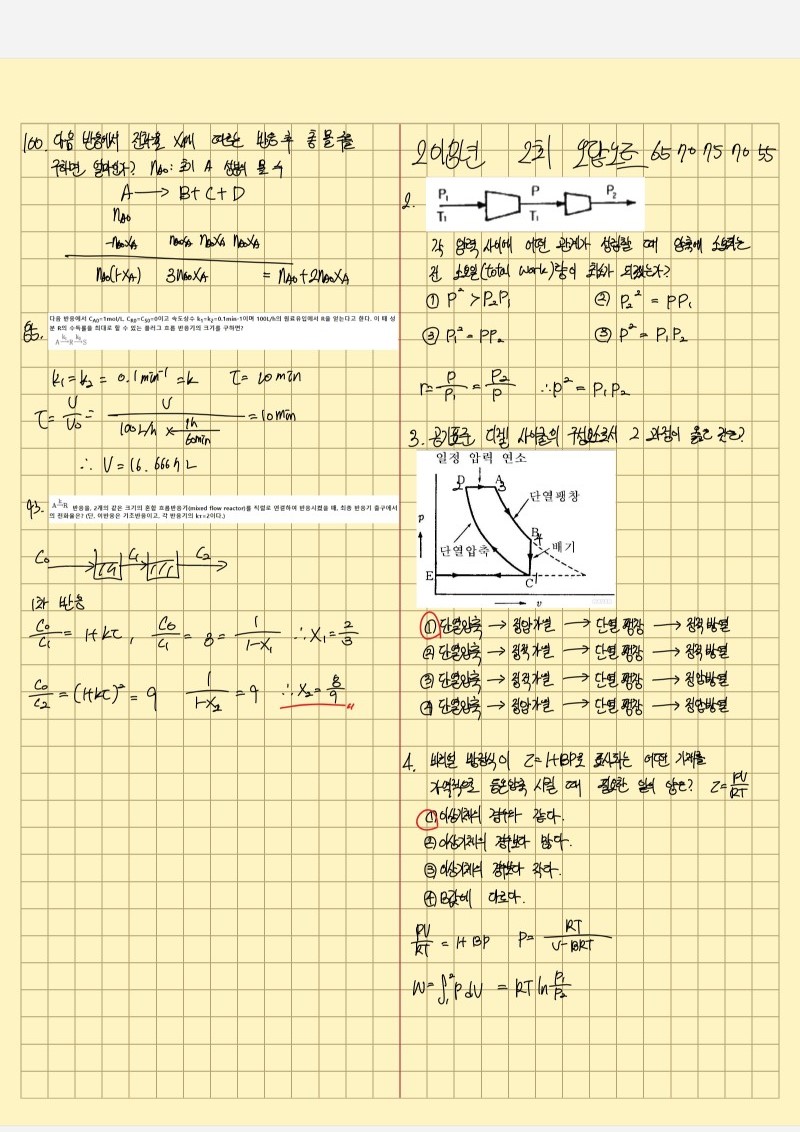 100. 다음 반응에서 전화율 XA에 따르는 반응 후 총 몰수를
구하면 얼마인가? nA0: 초기 A 성분의 몰수
A → B+C+D
nA0
-nA0XA nA0XA nA0XA nA0XA
nA0(1-XA) 3nA0XA = nA0+2nA0XA
85. 다음 반응에서 CA0=1mol/L, CR0=CS0=0이고 속도상수 k1=k2=0.1min-1이며 100L/h의 원료유입에서 R을 얻는다고 한다. 이 때 성
분 R의 수득률을 최대로 할 수 있는 플러그 흐름 반응기의 크기를 구하면?
A →k1 R →k2 S
k1=k2 = 0.1min⁻¹ = k τ=10min
τ = V/V0 = V/(100L/h × 1h/60min) = 10min
∴ V=16.6667L
93. A →k R 반응을, 2개의 같은 크기의 혼합 흐름반응기(mixed flow reactor)를 직렬로 연결하여 반응시켰을 때, 최종 반응기 출구에서
의 전화율은? (단, 이반응은 기초반응이고, 각 반응기의 kτ=2이다.)
C0 C1 C2
1차 반응
C0/C1 = 1+kτ, C0/C1 = 3 = 1/(1-X1) ∴X1=2/3
C0/C2 = (1+kτ)² = 9 1/(1-X2) = 9 ∴X2=8/9
2회 오답노트 65 70 75 70 55
2.
P1 P P2
T1 T1
각 압력 사이에 어떤 관계가 성립할 때 압축에 소요되는
전 소요일(total work)량이 최소가 되겠는가?
① P²>P2P1 ② P2²=PP1
③ P1²=PP2 ③ P²=P1P2
r=P/P1=P2/P ∴P²=P1P2
3. 공기표준 디젤 사이클의 구성요소로서 그 과정이 옳은 것은?
일정 압력 연소
D A
2 3
단열팽창
P
B
4
단열압축
배기
E C 1
v
① 단열압축 → 정압가열 → 단열팽창 → 정적방열
② 단열압축 → 정적가열 → 단열팽창 → 정적방열
③ 단열압축 → 정적가열 → 단열팽창 → 정압방열
④ 단열압축 → 정압가열 → 단열팽창 → 정압방열
4. 비리얼 방정식이 Z=1+BP로 표시되는 어떤 기체를
가역적으로 등온압축 시킬 때 필요한 일의 양은? Z=PV/RT
① 이상기체의 경우와 같다.
② 이상기체의 경우보다 많다.
③ 이상기체의 경우보다 작다.
④ B값에 다르다.
PV/RT = 1+BP P= RT/(V-BRT)
W=∫₁²PdV = RT ln P1/P2